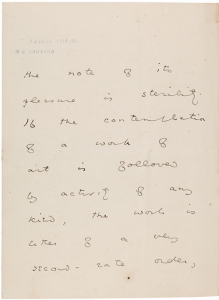 the note of its
pleasure is sterility.
If the contemplation
of a work of
art is followed
by activity of any
kind, the work is
either of a very
second-rate order,